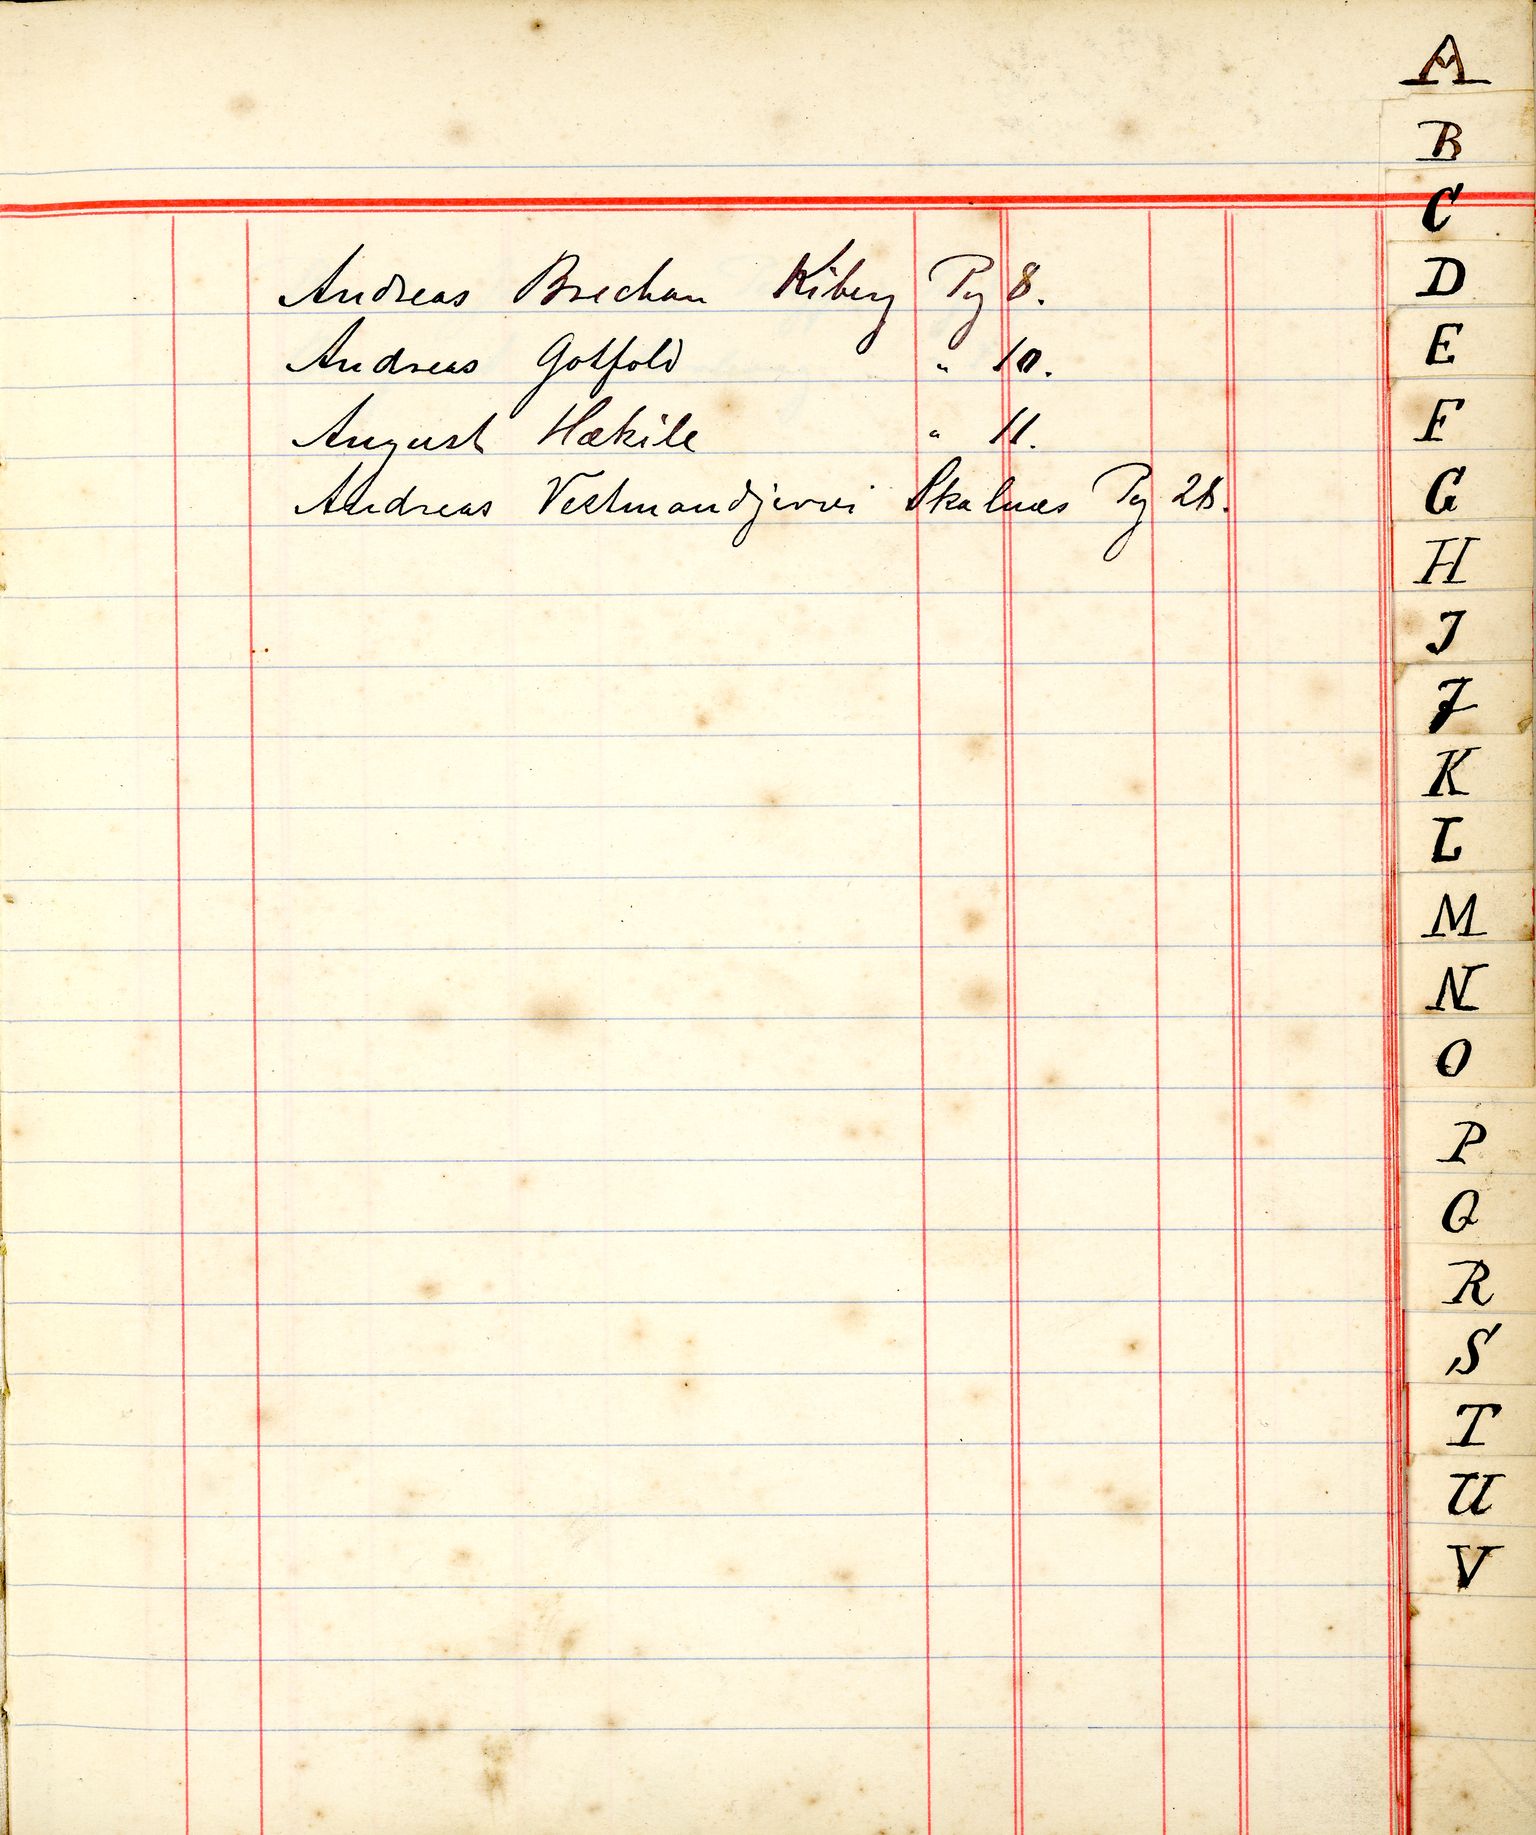 Andreas Brechan Kiberg Pg 8.
Andreas Gotfold " 10.
August Hækile " 11.
Andreas Vestmandjervi Skalnæs Pg 28.
A
B
C
D
E
F
G
H
I
J
K
L
M
N
O
P
Q
R
S
T
U
V